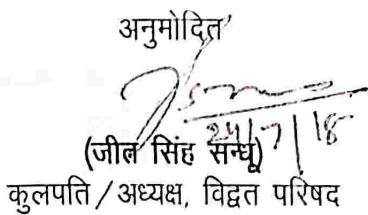 अनुमोदित
24/7/18
(जीत सिंह सन्धू)
कुलपति / अध्यक्ष, विद्वत परिषद